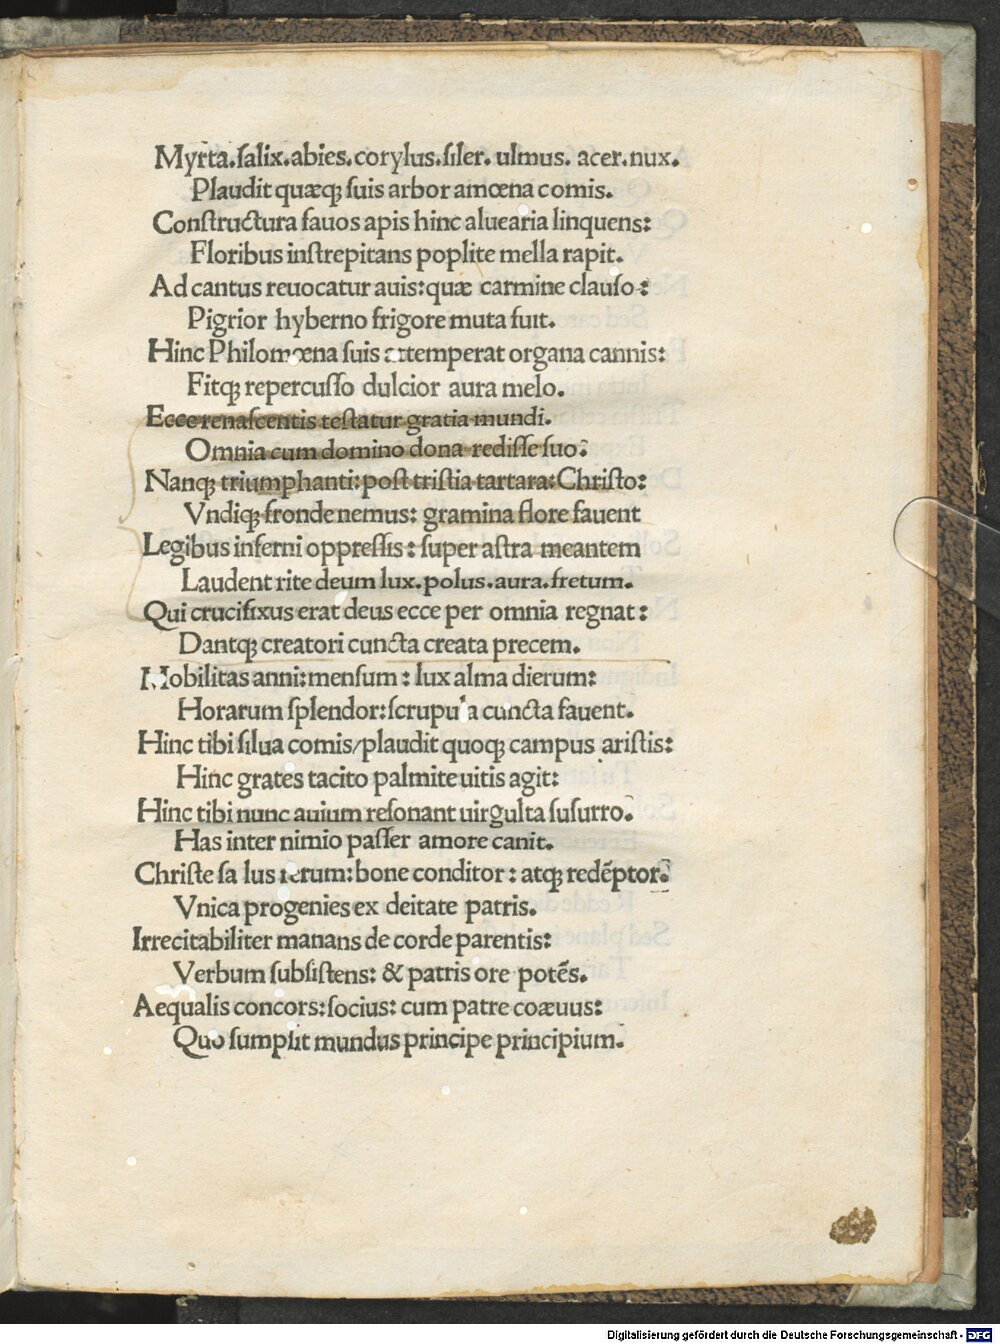 Myrta.salix.abies.corylus.siler. ulmus. acer.nux.
Plaudit quæqꝫ suis arbor amœna comis.
Constructura fauos apis hinc aluearia linquens:
Floribus instrepitans poplite mella rapit.
Ad cantus reuocatur auis:quæ carmine clauso:
Pigrior hyberno frigore muta fuit.
Hinc Philomœna suis attemperat organa cannis:
Fitqꝫ repercusso dulcior aura melo.
Ecce renascentis testatur gratia mundi.
Omnia cum domino dona redisse suo:
Nanqꝫ triumphanti:post tristia tartara:Christo:
Vndiqꝫ fronde nemus: gramina flore fauent
Legibus inferni oppressis: super astra meantem
Laudent rite deum lux.polus.aura.fretum.
Qui crucifixus erat deus ecce per omnia regnat:
Dantqꝫ creatori cuncta creata precem.
Mobilitas anni:mensum: lux alma dierum:
Horarum splendor:scrupula cuncta fauent.
Hinc tibi silua comis/plaudit quoqꝫ campus aristis:
Hinc grates tacito palmite uitis agit:
Hinc tibi nunc auium resonant uirgulta susurro:
Has inter nimio passer amore canit.
Christe sa lus rerum:bone conditor: atqꝫ redẽptor:
Vnica progenies ex deitate patris.
Irrecitabiliter manans de corde parentis:
Verbum subsistens: & patris ore potẽs.
Aequalis concors:socius: cum patre coæuus:
Quo sumpsit mundus principe principium.
Digitalisierung gefördert durch die Deutsche Forschungsgemeinschaft - DFG